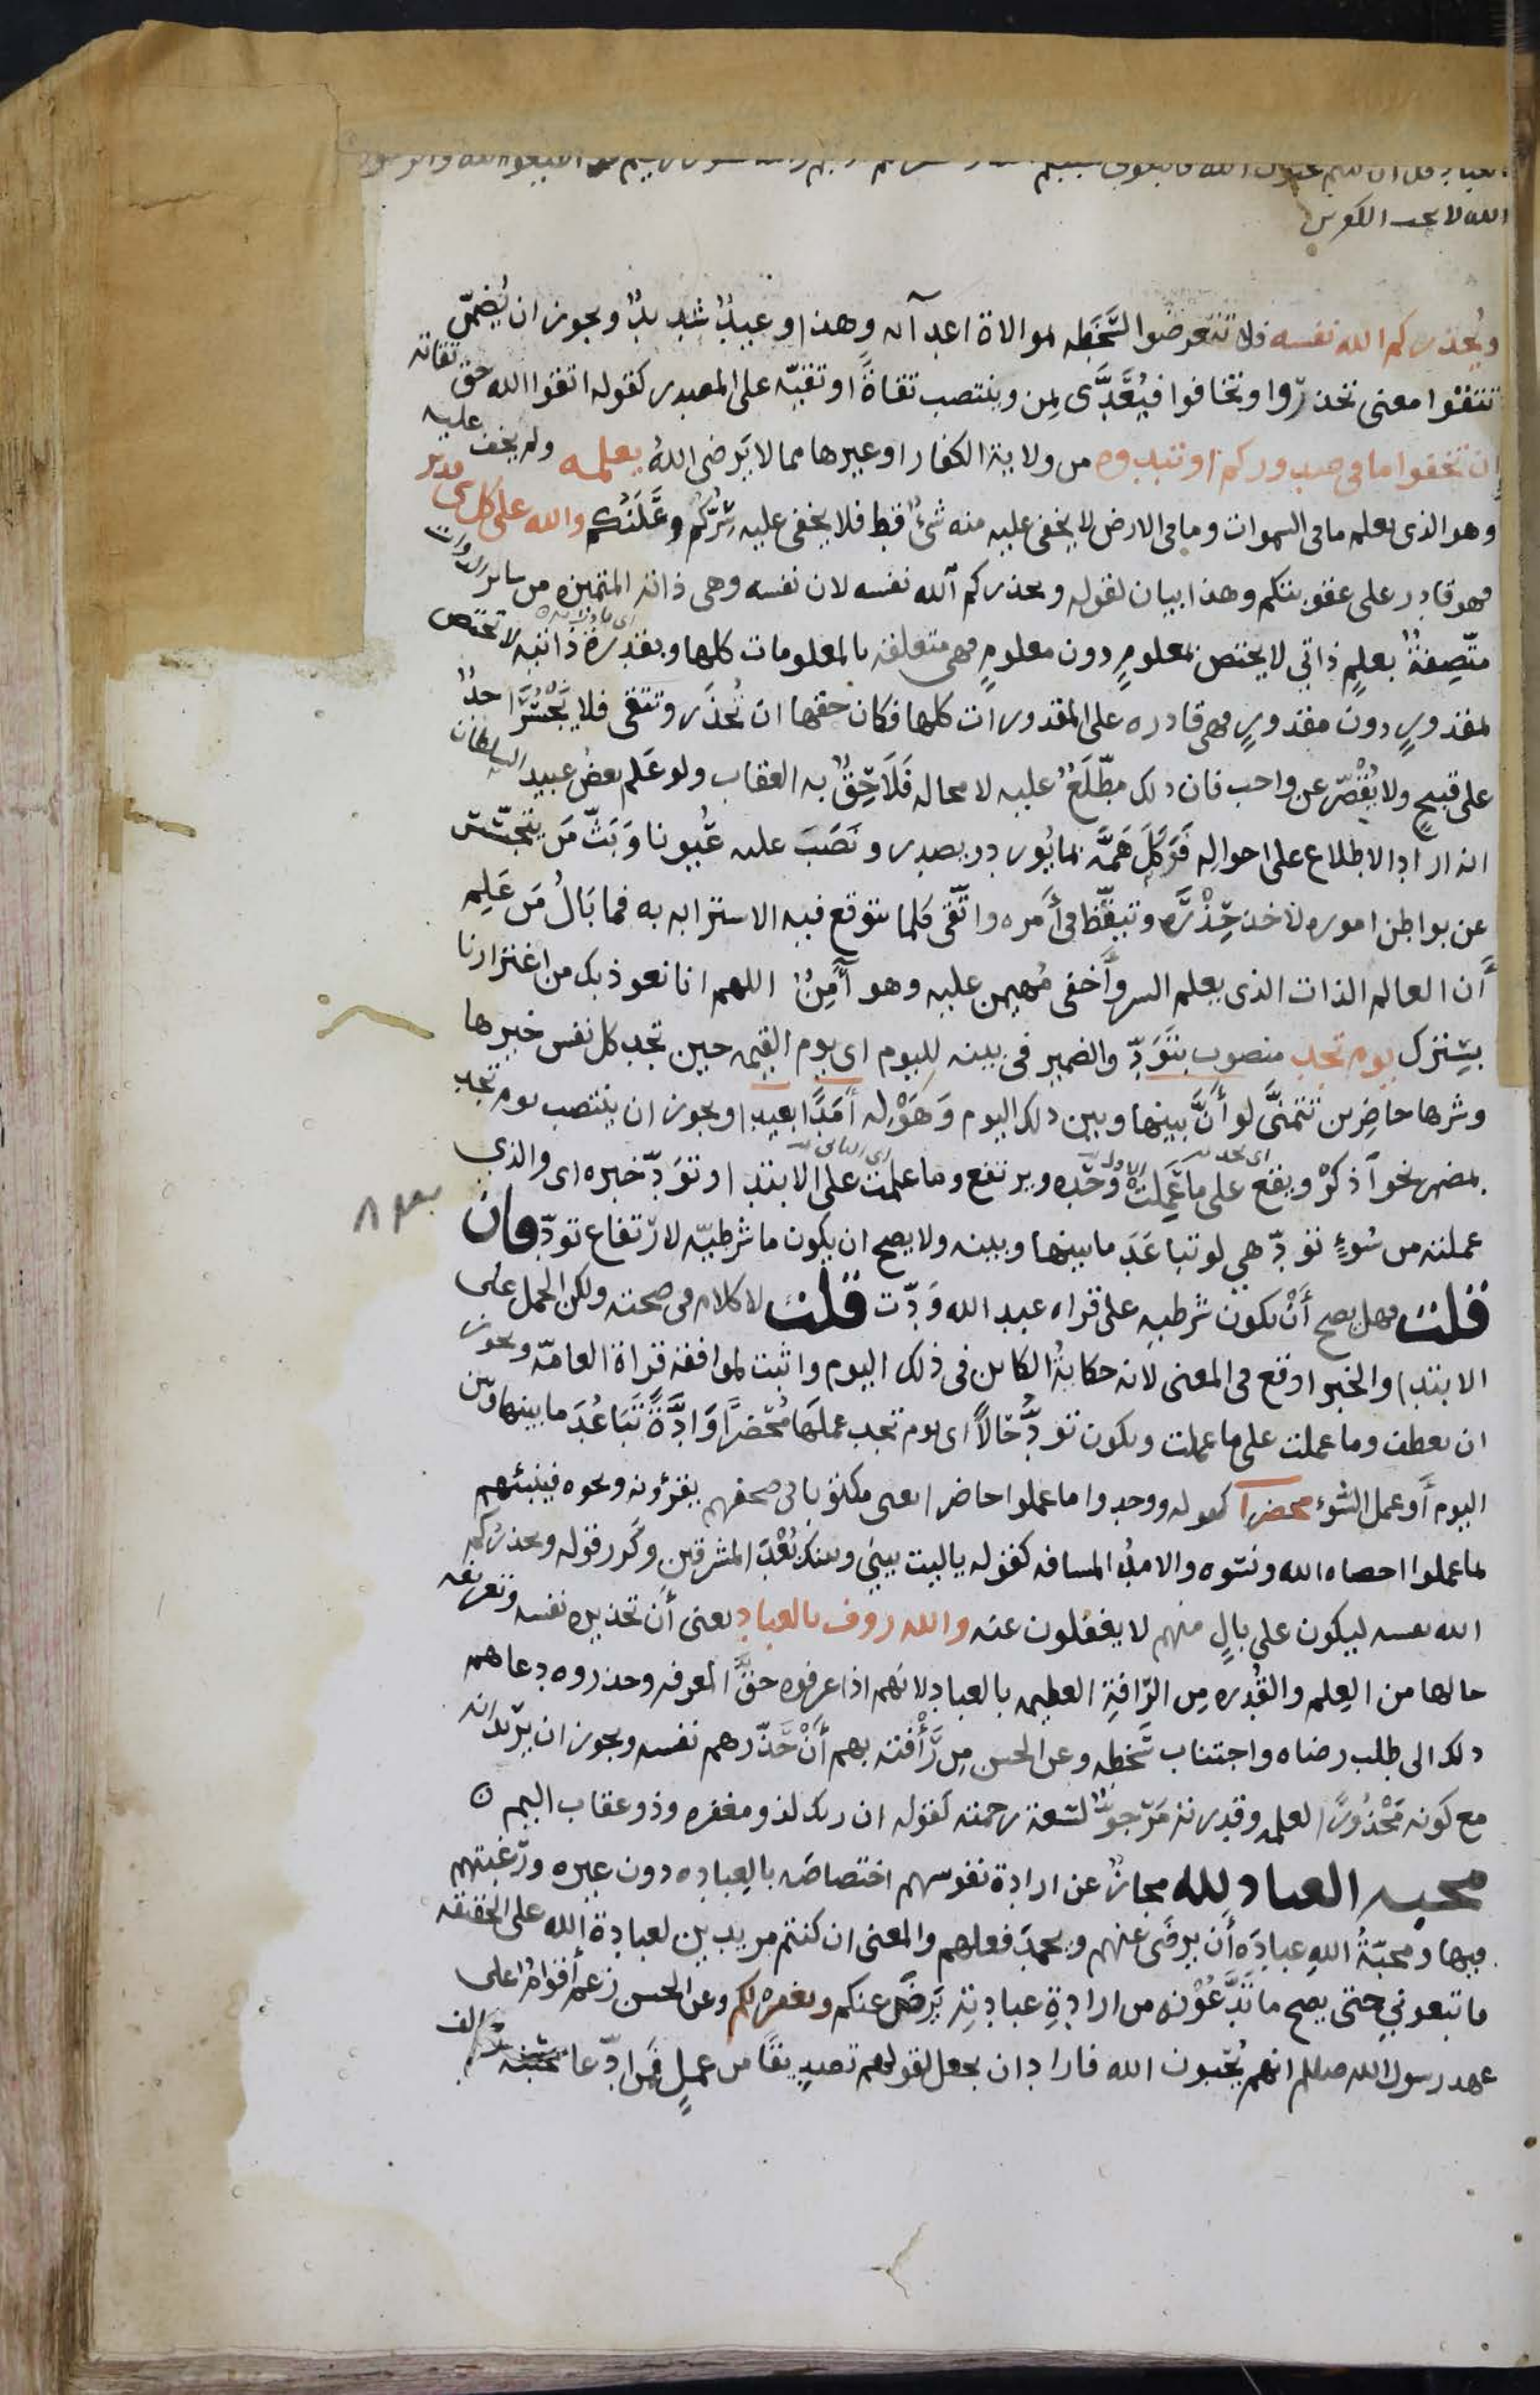 العباد قل ان كنتم تحبون الله فاتبعوني يحببكم الله ويغفر لكم ذنوبكم والله غفور رحيم قل اطيعوا الله والرسول
الله لا يحب الكفرين
ويُحذركم الله نفسه فلا تتعرضوا لسَّخَطِه بموالاة اعدآئه وهذا وعيدٌ شديدٌ ويجوز ان يُضمّن
تتقوا معنى تحذروا وتخافوا فيُعَدَّى بِمن وينتصب تقاةً او تقيّه على المصدر كقوله اتقوا الله حق تقاته
ان تخفوا ما في صدوركم او تبدوه من ولاية الكفار او غيرها مما لا يَرضى اللهُ يعلمه ولم يخف عليه
وهو الذي يعلم ما في السموات وما في الارض لا يخفى عليه منه شئٌ قط فلا يخفى عليه سِرّكُم وعَلَنُكم والله على كل شى قدير
فهو قادر على عقوبتكم وهذا بيان لقوله ويحذركم الله نفسه لان نفسه وهى ذاته المتميزه من سائر الذوات
متّصِفةٌ بعلمٍ ذاتي لا يختص بمعلومٍ دون معلومٍ فهى متعلقه بالمعلومات كلها وبقدرة ذاتيه لا تختص
بمقدورٍ دون مقدورٍ فهى قادره على المقدورات كلها فكان حقها ان تُحذَر وتتقى فلا يَجْسُرَ احدٌ
على قبيحٍ ولا يُقْصّر عن واجب فان ذلك مطّلَعٌ عليه لا محاله فَلَاحِقٌ به العقاب ولو عَلم بعضُ عبيد السلطان
انه اراد الاطلاع على احوالِه فَوَكَلَ هَمَّه بما يُورد ويصدر ونَصَبَ عليه عُيونا وَبَثَّ مَن يتجسّس
عن بواطن اموره لاخذ حِذْرَه وتيقّظ في أَمره واتّقى كلما يتوقع فيه الاسترابه به فما بَالُ مَن عَلِم
أَن العالم الذات الذي يعلم السر وأَخفى مُهيمن عليه وهو آمِنٌ اللهم انا نعوذ بك من اغترارنا
بسِترك يوم تجد منصوب بتَوَدّ والضمير في بينه لليوم اى يوم القيمه حين تجد كل نفس خيرها
وشرها حاضِرين تتمنَّى لو أَنَّ بينها وبين ذلك اليوم وَهَوْلِه أَمَدًا بعيدا ويجوز ان ينتصب يوم تجد
بمضمر نحو اَذكرْ ويقع على ما عَمِلَتْ وحْده ويرتفع وما عملت على الابتدا وتَوَدّ خبره اى والذي
عملته من سُوءٍ تودّ هي لو تباعَدَ ما بينها وبينه ولا يصح ان يكون ما شرطيّه لارتفاع تودّ فان
قلت فهل يصح أَنْ يكون شرطيه على قراه عبد الله وَدّت قلت لا كلام في صحته ولكن الحمل على
الابتدا والخبر اوقع في المعنى لانه حكايةُ الكائن في ذلك اليوم واثبت لموافقه قراة العامّه ويجوز
ان يعطف وما عملت على ما عملت ويكون تودُّ حَالًا اى يوم تجد عملَها مُحْضَرًا وَادَّةً تَبَاعُدَ ما بينها وبين
اليوم أَو عمل السُوء محضرا كقوله ووجدوا ما عملوا حاضرا يعنى مكتوبا في صحفهم يقرؤونه ونحوه فينبئهم
بما عملوا احصاه الله ونسوه والامدُ المسافه كقوله ياليت بيني وبينك بُعْدَ المشرقين وكَرر قوله ويحذركم
الله نفسه ليكون على بالٍ منهم لا يغفُلون عنه والله روف بالعباد يعنى أَن تحذيره نفسه وتعريفه
حالها من العِلم والقُدره مِن الرَّافةِ العظيمه بالعباد لانهم اذا عرفوه حقَّ المعرفه وحذروه دعاهم
ذلك الى طلب رضاه واجتناب سَخطِه وعن الحسن مِن رَأْفته بهم أَنْ حَذّرهم نفسه ويجوز ان يريد انه
مع كونه مَحْذُورًا لعلمه وقدرته مَرْجوٌّ لسَعة رحمته كقوله ان ربك لذو مغفره وذو عقاب اليم
محبه العباد لله مجازٌ عن ارادة نفوسهم اختصاصَه بالعِباده دون غيره ورَغبتهم
فيها ومحبّةُ اللهِ عبادَه أَن يرضَى عنهم ويحمدَ فعلهم والمعنى ان كنتم مريدين لعبادة الله على الحقيقه
فاتبعوني حتى يصح ما تَدَّعُوْنه من ارادةِ عبادتِه يَرضَ عنكم ويغفر لكم وعن الحسن زعم أَقوامٌ على
عهد رسول الله صلعلم انهم يُحِبون الله فاراد ان يجعل لقولهم تصديقًا من عملٍ فمَن ادّعا محبّتَه وخالف